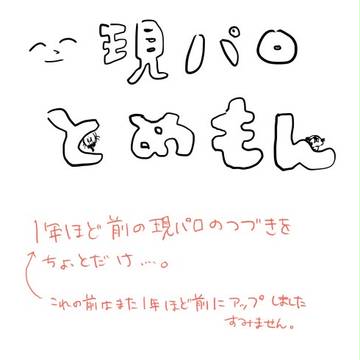 現パロ
とめもん
1年ほど前の現パロのつづきを
ちょっとだけ….。
これの前はまた1年ほど前にアップしました
すみません。